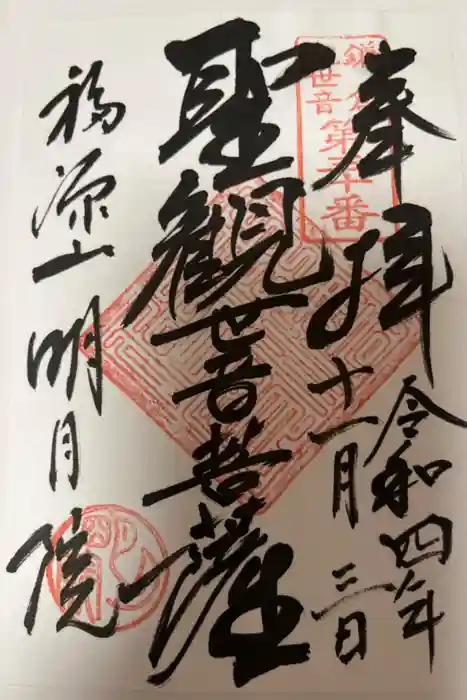 奉拝
令和四年
十一月三日
聖觀世音菩薩
福源山明月院
鎌倉
観世音
第三十番